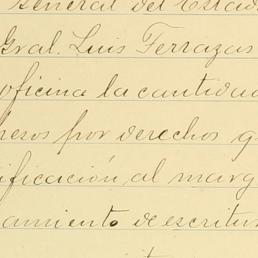 General del Estado
Gral. Luis Terrazas
oficina la cantidad
pesos por derechos q
ificación al marg
amiento de escritu